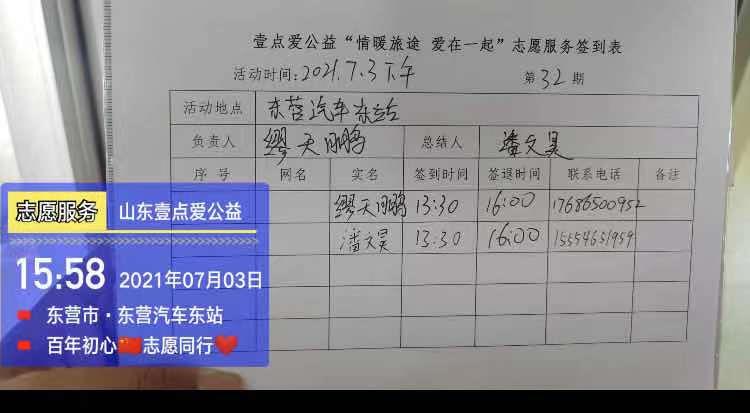 壹点爱公益“情暖旅途 爱在一起”志愿服务签到表
活动时间:2021.7.3下午 第32期
活动地点 东营汽车东站
负责人 缪天鹏 总结人 潘文昊
序号 网名 实名 签到时间 签退时间 联系电话 备注
缪天鹏 13:30 16:00 17686500952
潘文昊 13:30 16:00 15554651959
志愿服务 山东壹点爱公益
15:58 2021年07月03日
东营市·东营汽车东站
百年初心🇨🇳志愿同行❤